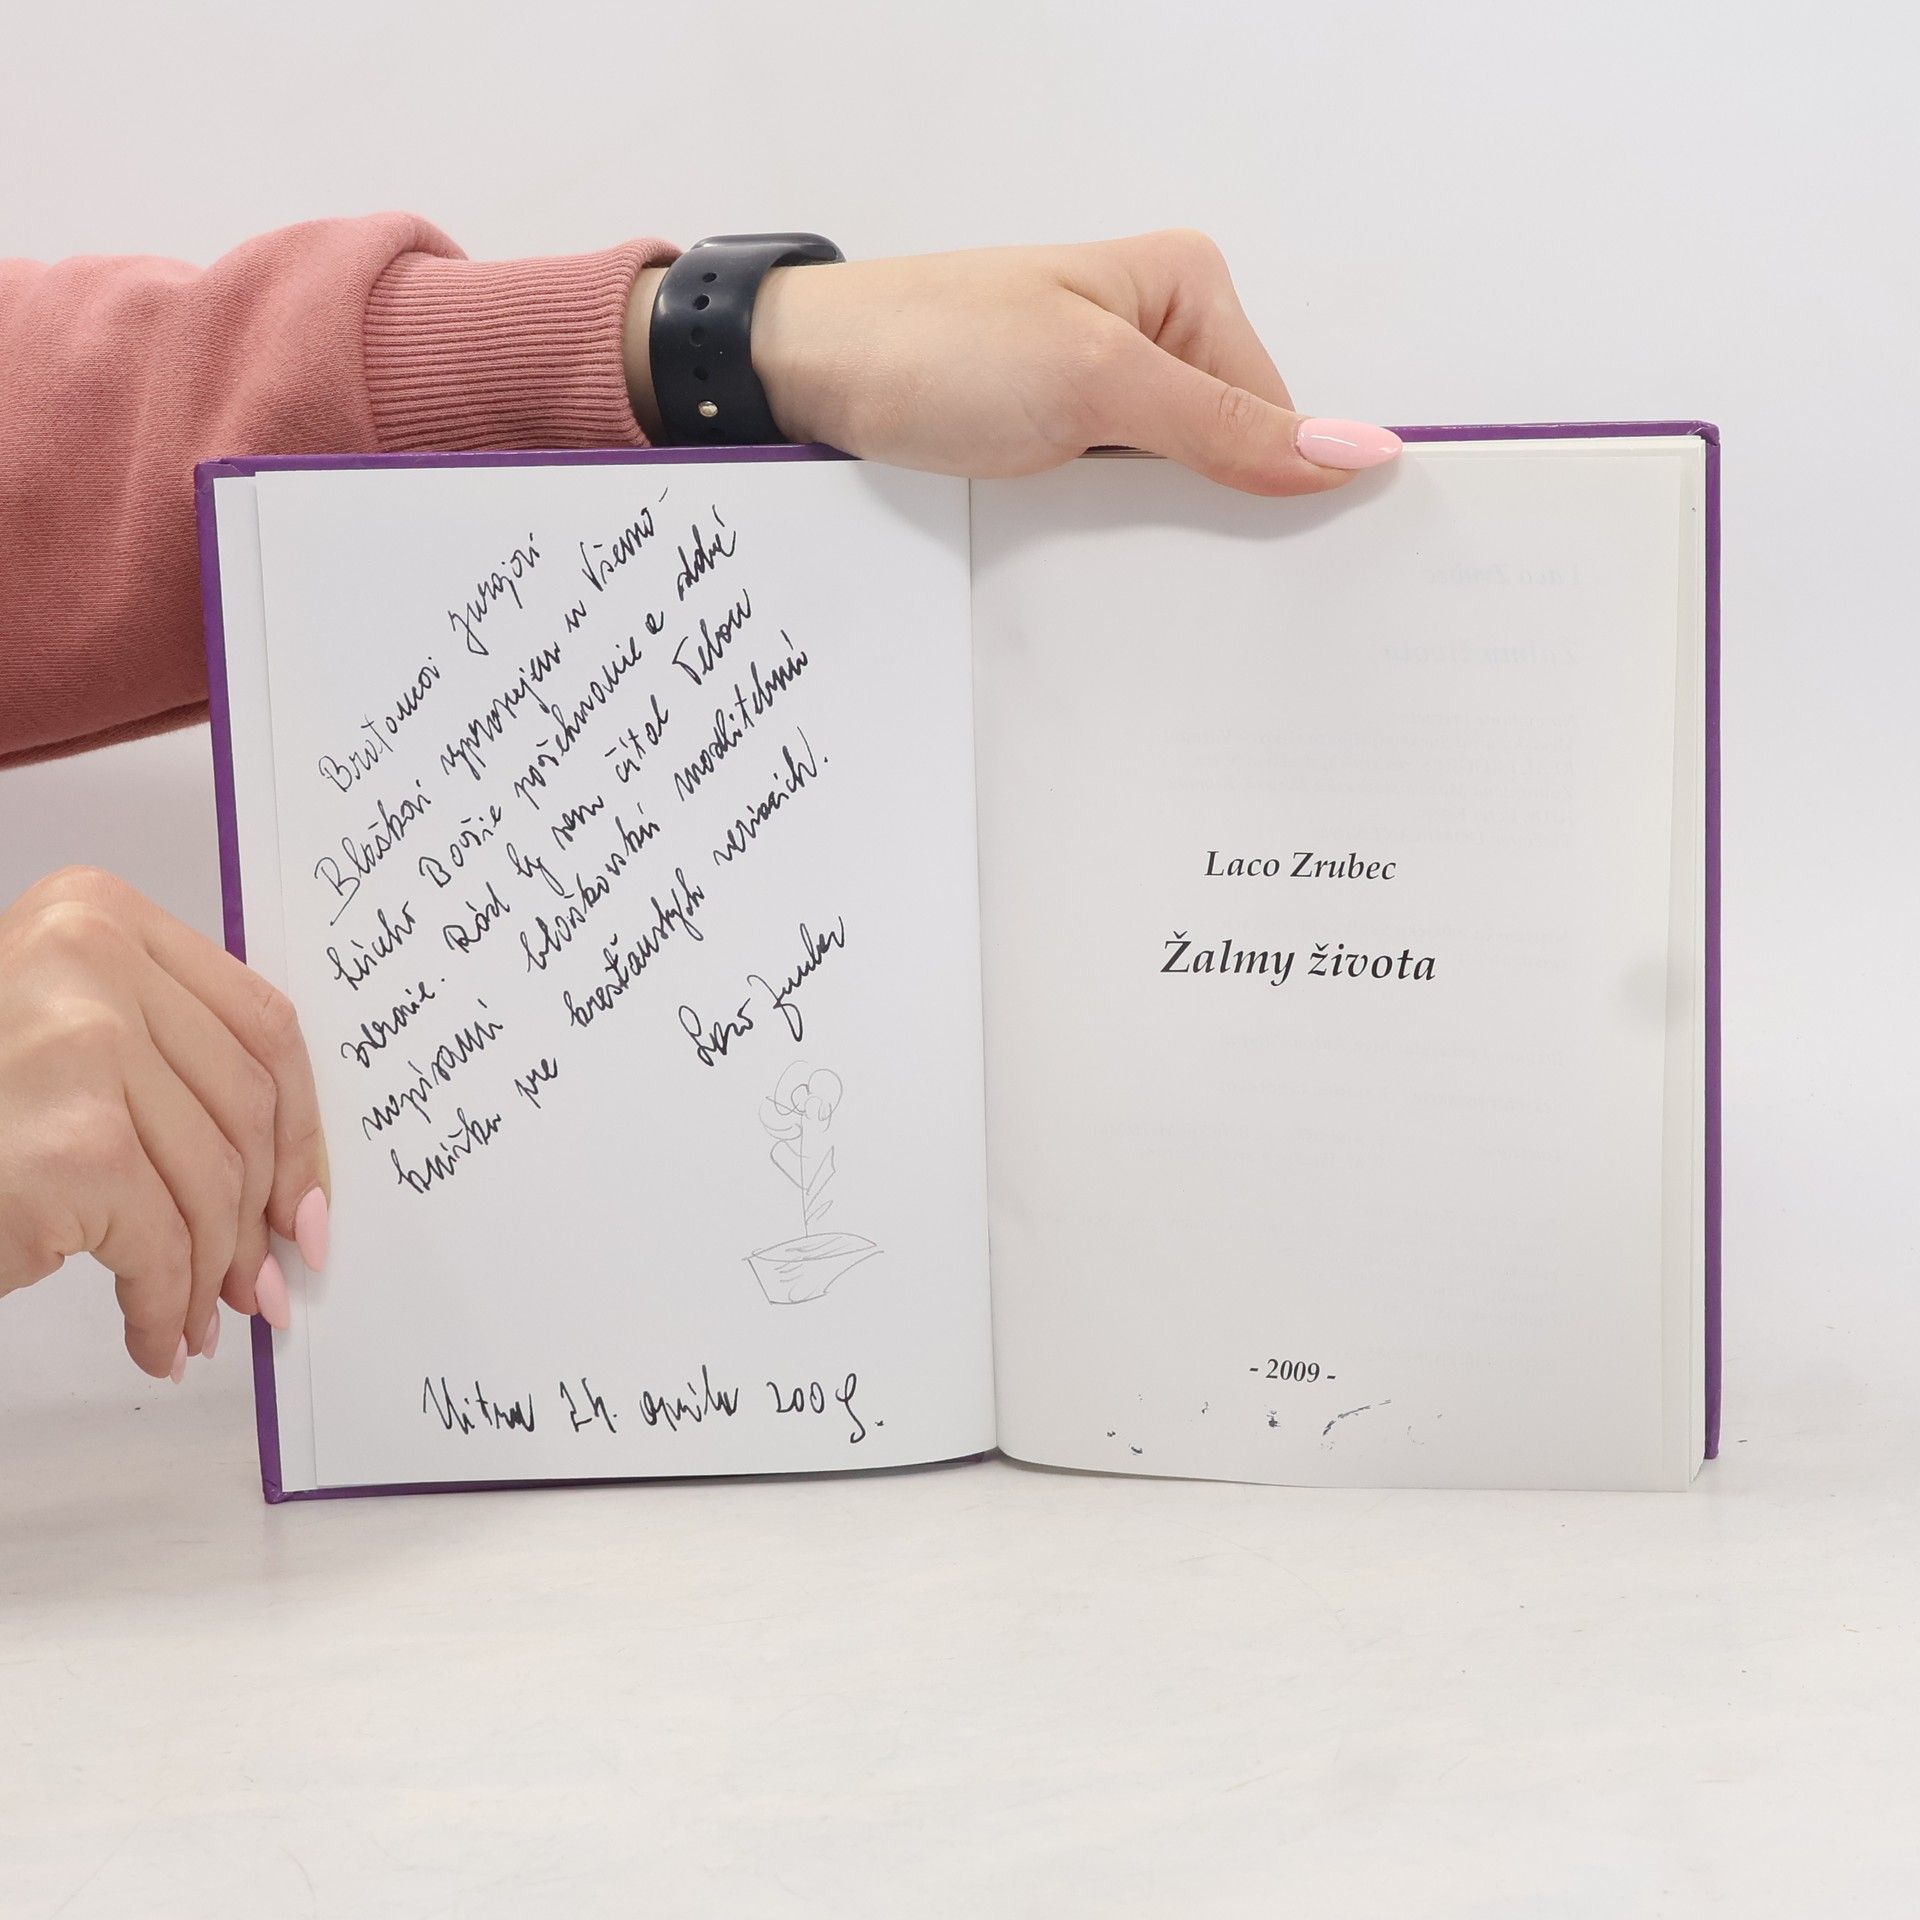 Bratancovi Jurajovi
Blaškovi vyprosujem u Všemo-
húceho Božie požehnanie a dobré
zdravie. Rád by som čítal Tebou
napísanú blaškovskú modlitebnú
knižku pre kresťanských veriacich.
Laco Zrubec
Nitra 24. apríla 2009.
Laco Zrubec
Žalmy života
- 2009 -